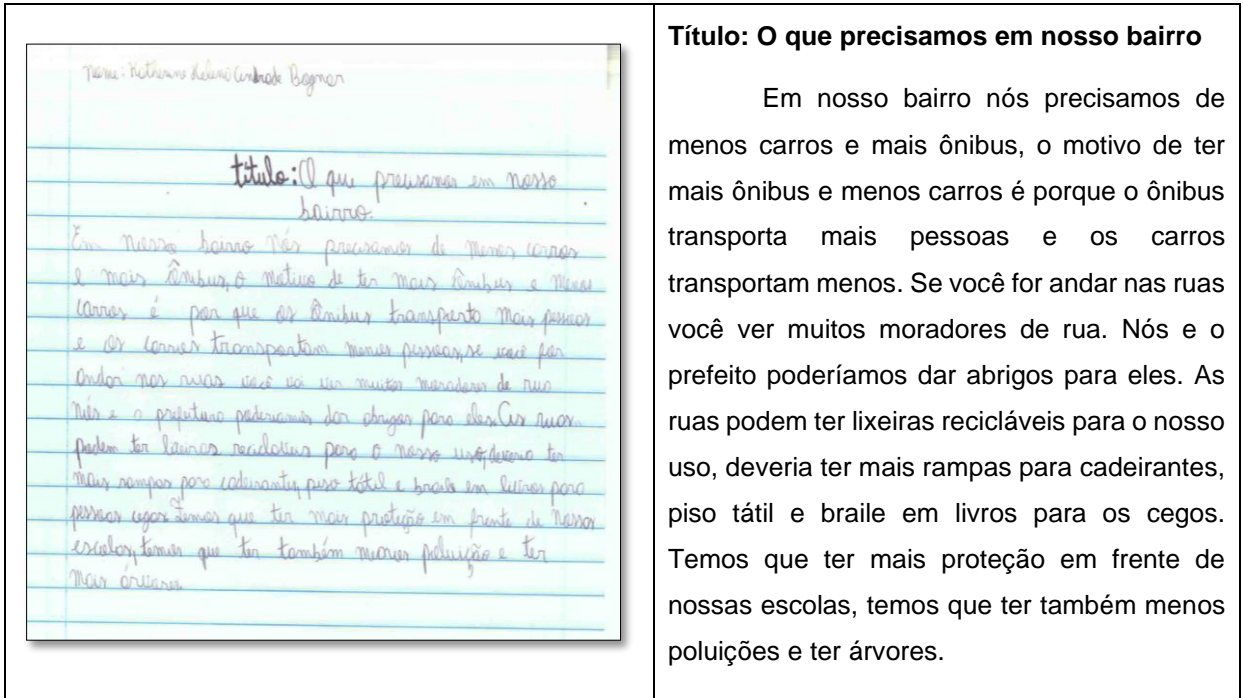 nome: Katherine Heleni Andrade Bognar
título: O que precisamos em nosso
bairro.
Em nosso bairro nós precisamos de menos carros
e mais ônibus, o motivo de ter mais ônibus e menos
carros é por que os ônibus transporta mais pessoas
e os carros transportam menos pessoas, se você for
andar nas ruas você vai ver muitos moradores de rua
nós e a prefeitura poderiamos dar abrigos para eles. As ruas
podem ter lixeiras para o nosso uso, deveria ter
mais rampas para cadeirantes, piso tátil e braile em livros para
pessoas cegas. Temos que ter mais proteção em frente de nossas
escolas, temos que ter também menos poluição e ter
mais árvores.
Título: O que precisamos em nosso bairro
Em nosso bairro nós precisamos de
menos carros e mais ônibus, o motivo de ter
mais ônibus e menos carros é porque o ônibus
transporta mais pessoas e os carros
transportam menos. Se você for andar nas ruas
você ver muitos moradores de rua. Nós e o
prefeito poderíamos dar abrigos para eles. As
ruas podem ter lixeiras recicláveis para o nosso
uso, deveria ter mais rampas para cadeirantes,
piso tátil e braile em livros para os cegos.
Temos que ter mais proteção em frente de
nossas escolas, temos que ter também menos
poluições e ter árvores.